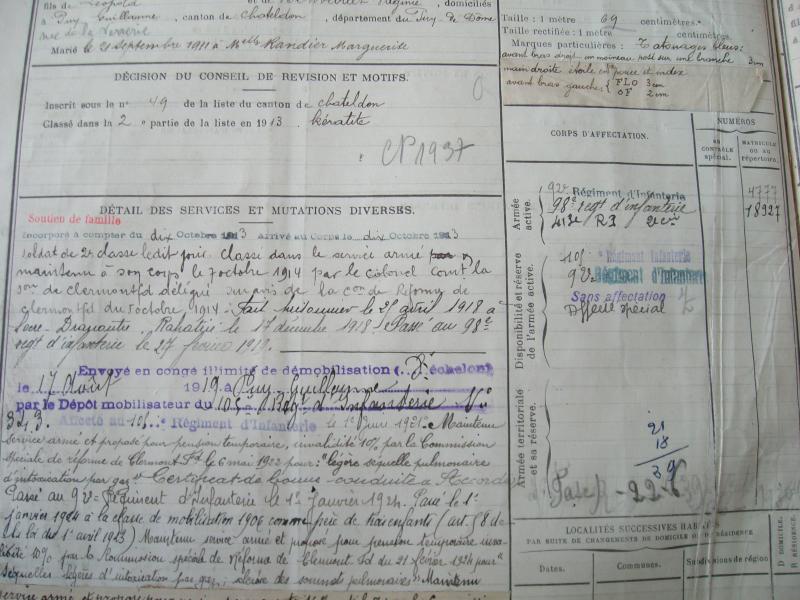 fils de Léopold et de domiciliés
à Puy Guillaume, canton de Chateldon, département du Puy de Dôme
Marié le 21 septembre 1911 à Melle Randier Marguerite
DÉCISION DU CONSEIL DE REVISION ET MOTIFS.
Inscrit sous le n° 49 de la liste du canton de Chateldon
Classé dans la 2e partie de la liste en 1913 Kératite
CP 1937
DÉTAIL DES SERVICES ET MUTATIONS DIVERSES.
Soutien de famille
Incorporé à compter du dix Octobre 1913 Arrivé au Corps le dix Octobre 1913
soldat de 2e classe ledit jour. Classé dans le service armé
maintenu à son corps le 7 octobre 1914 par le colonel Comt la
son de Clermontfd délégué sur avis de la Con de Réforme de
Clermontfd du 5 octobre 1914. Fait prisonnier le 25 avril 1918 à
Dranoutre. Rapatrié le 17 décembre 1918. Passé au 98e
regt d'infanterie le 27 février 1919.
Envoyé en congé illimité de démobilisation ( échelon)
le 17 Août 1919 à Puy Guillaume
par le Dépôt mobilisateur du 105e d'Infanterie
Affecté au 105e Régiment d'Infanterie le 1er Juin 1921. Maintenu
service armé et proposé pour pension temporaire, invalidité 10% par la Commission
spéciale de réforme de Clermont Fd le 6 mai 1922 pour: "légère séquelle pulmonaire
d'intoxication par gaz" Certificat de bonne conduite "Accordé"
Passé au 92e Régiment d'Infanterie le 1er Janvier 1924. Passé le 1er
janvier 1924 à la classe de mobilisation 1906 comme père de trois enfants (art. 58 de
la loi du 1er avril 1923) Maintenu service armé et proposé pour pension temporaire inva-
lidité 10% par la Commission spéciale de Réforme de Clermont Fd du 21 février 1924 pour
séquelles légères d'intoxication par gaz; sclérose des sommets pulmonaires" Maintenu
service armé et proposé pour
Taille : 1 mètre 69 centimètres.
Taille rectifiée : 1 mètre centimètres.
Marques particulières : Tatouages bleus:
avant bras droit un moineau posé sur une branche 3cm
main droite étoile entre pouce et index
avant bras gauche: FLO 3cm
OF 2cm
CORPS D'AFFECTATION.
NUMÉROS
AU CONTRÔLE spécial.
MATRICULE OU AU répertoire.
Armée active.
92e Régiment d'Infanterie 4777
98e regt d'infanterie 18927
Disponibilité et réserve de l'armée active.
105e Régiment Infanterie
92e Régiment d'Infanterie
Sans affectation
Affecté spécial
Armée territoriale et sa réserve.
21
18
39
LOCALITÉS SUCCESSIVES HABITÉES
PAR SUITE DE CHANGEMENTS DE DOMICILE OU DE RÉSIDENCE
Dates.
Communes.
Subdivisions de région
D DOMICILE.
R RÉSIDENCE.